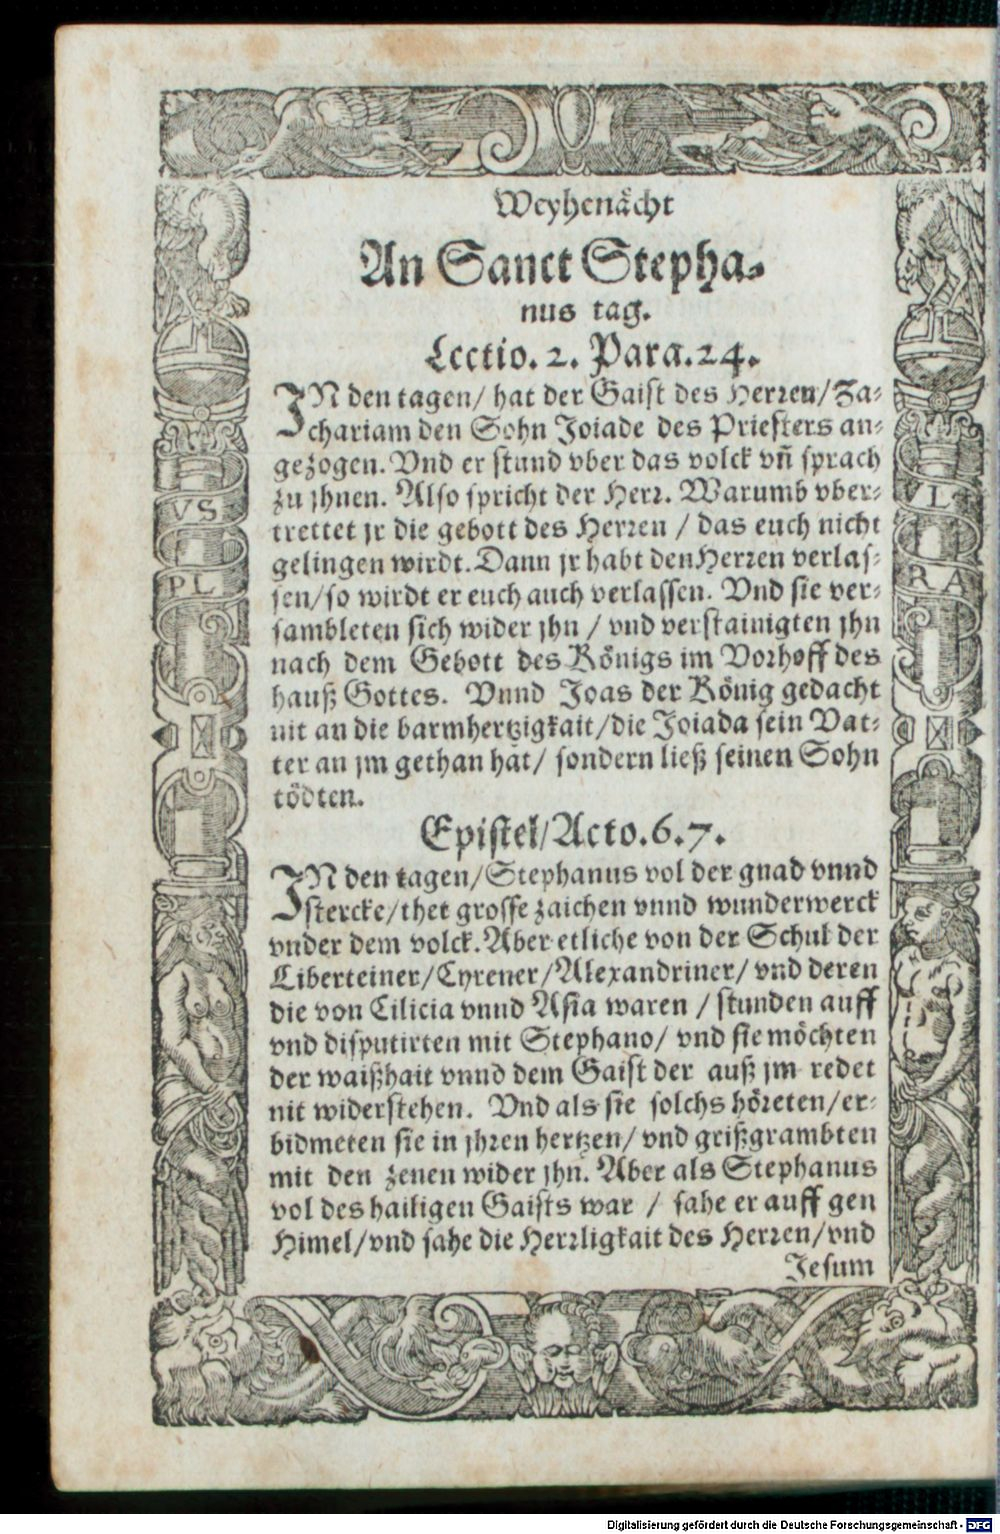 Weyhenächt
An Sanct Stepha⸗
nus tag.
Lectio. 2. Para. 24.
JN den tagen/ hat der Gaist des Herren/ Za⸗
chariam den Sohn Joiade des Priesters an⸗
gezogen. Vnd er stund vber das volck vñ sprach
zu jhnen. Also spricht der Herr. Warumb vber⸗
trettet jr die gebott des Herren / das euch nicht
gelingen wirdt. Dann jr habt den Herren verlas⸗
sen/ so wirdt er euch auch verlassen. Vnd sie ver⸗
sambleten sich wider jhn / vnd verstainigten jhn
nach dem Gebott des Königs im Vorhoff des
hauß Gottes. Vnnd Joas der König gedacht
nit an die barmhertzigkait/ die Joiada sein Vat⸗
ter an jm gethan hat/ sondern ließ seinen Sohn
tödten.
Epistel/ Acto. 6. 7.
JN den tagen/ Stephanus vol der gnad vnnd
stercke/ thet grosse zaichen vnnd wunderwerck
vnder dem volck. Aber etliche von der Schul der
Liberteiner/ Cyrener/ Alexandriner/ vnd deren
die von Cilicia vnnd Asia waren / stunden auff
vnd disputirten mit Stephano/ vnd sie möchten
der waißhait vnnd dem Gaist der auß jm redet
nit widerstehen. Vnd als sie solchs höreten/ er⸗
bidmeten sie in jhren hertzen/ vnd grißgrambten
mit den zenen wider jhn. Aber als Stephanus
vol des hailigen Gaists war / sahe er auff gen
Himel/ vnd sahe die Herrligkait des Herren/ vnd
Jesum
VS
PL
VL
RA
Digitalisierung gefördert durch die Deutsche Forschungsgemeinschaft - DFG